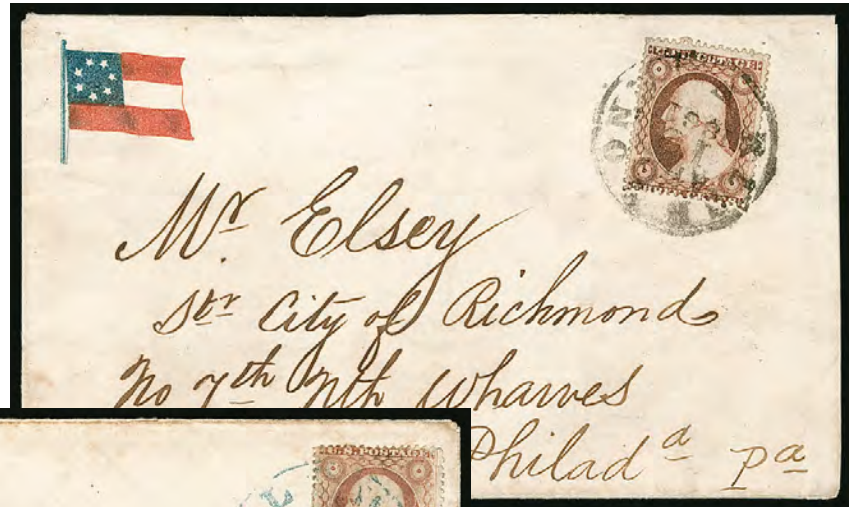 Mr Elsey
Str City of Richmond
No 7th Nth Wharves
Philada Pa